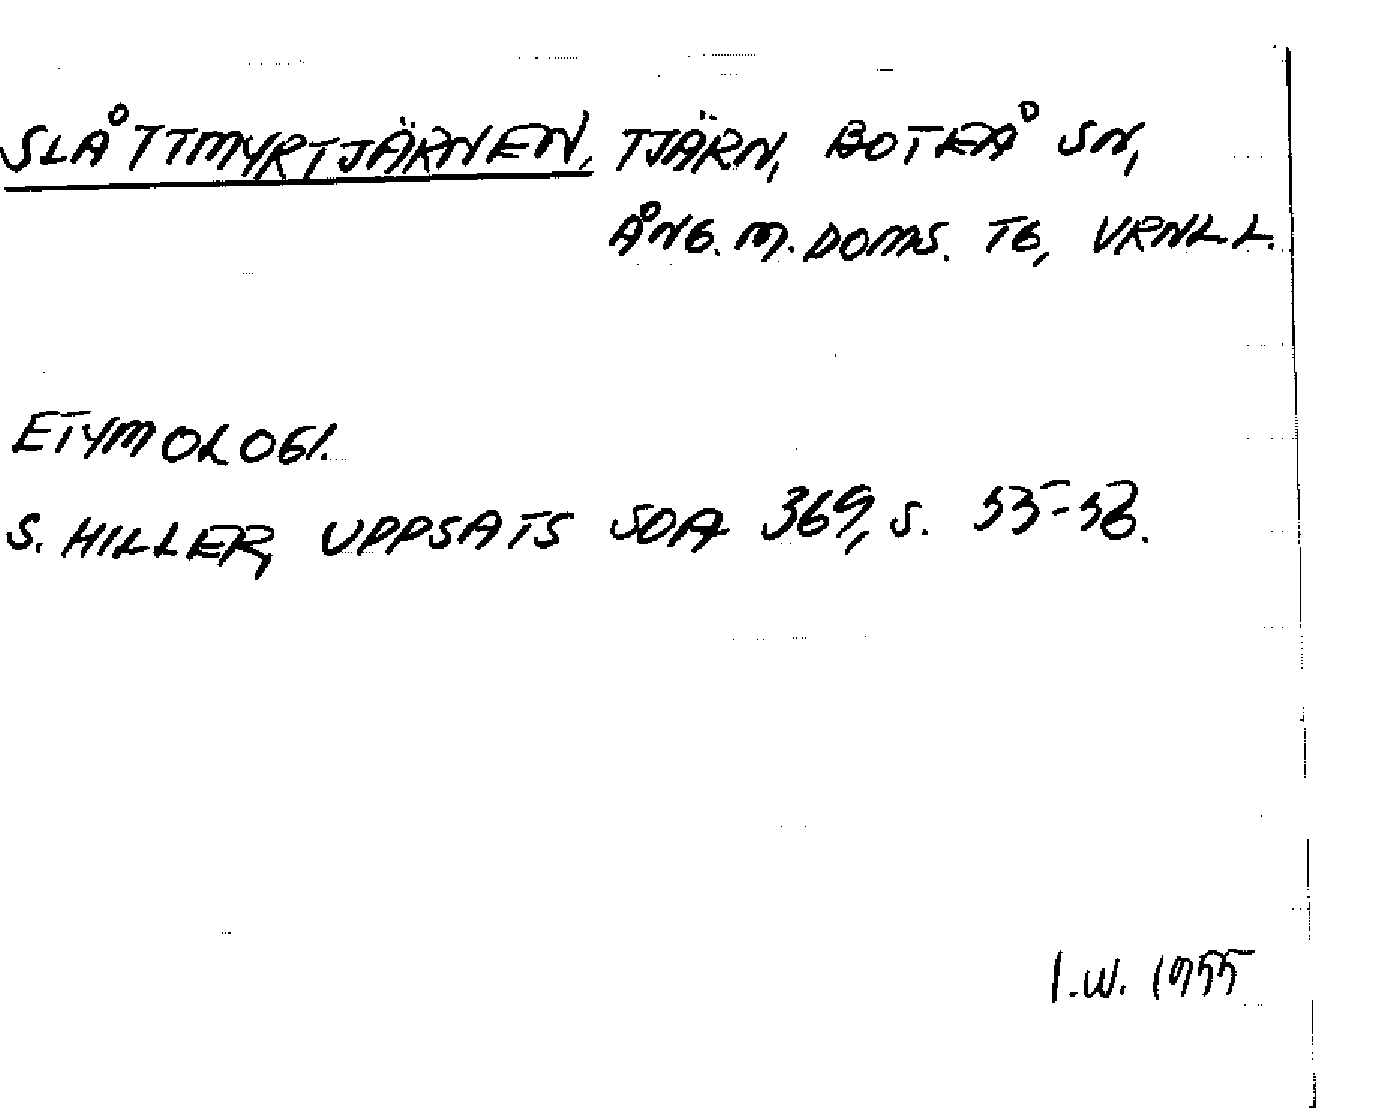 SLÅTTMYRTJÄRNEN, TJÄRN, BOTEÅ SN,
ÅNG. M. DOMS. TG, VRNLL.
ETYMOLOGI.
S. HILLER, UPPSATS SOA 369, S.
I.W. 1955